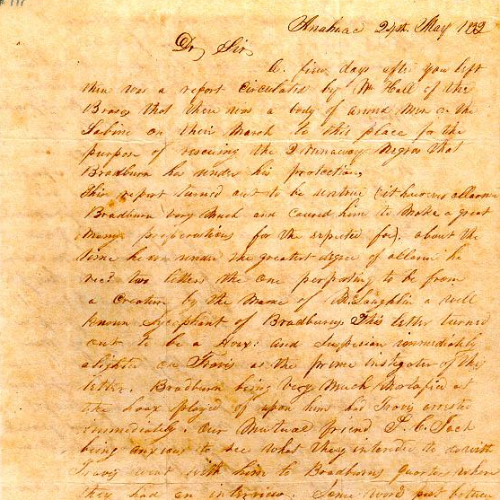 Anahuac 24th May 1832
Dr Sir
A few days after you left
there was a report Circulated by Wm Hall of the
Brasos that there was a body of armed Men on the
Sabine on their March to this place for the
purpose of rescuing the 2 Runaway Negros that
Bradburn has under his protection,
This report turned out to be untrue
Bradburn very Much and caused him to Make a great
Many preparations for the expected foe. about the
time he was under the greatest degree of allarm he
recd two letters the one purporting to be from
a Creation by the Name of McLaughlin a well
known Sycophant of Bradburns This letter turned
out to be a Hoax: and Suspecion immediately
alighted on Travis as the prime instigator of this
letter. Bradburn being Very Much
the hoax played of upon him had Travis arrested
immediately. Our Mutual friend P. C. Jack
being anxious to see what they intended to do with
Travis went with him to Bradburns quarters where
they had an interview. Some word past